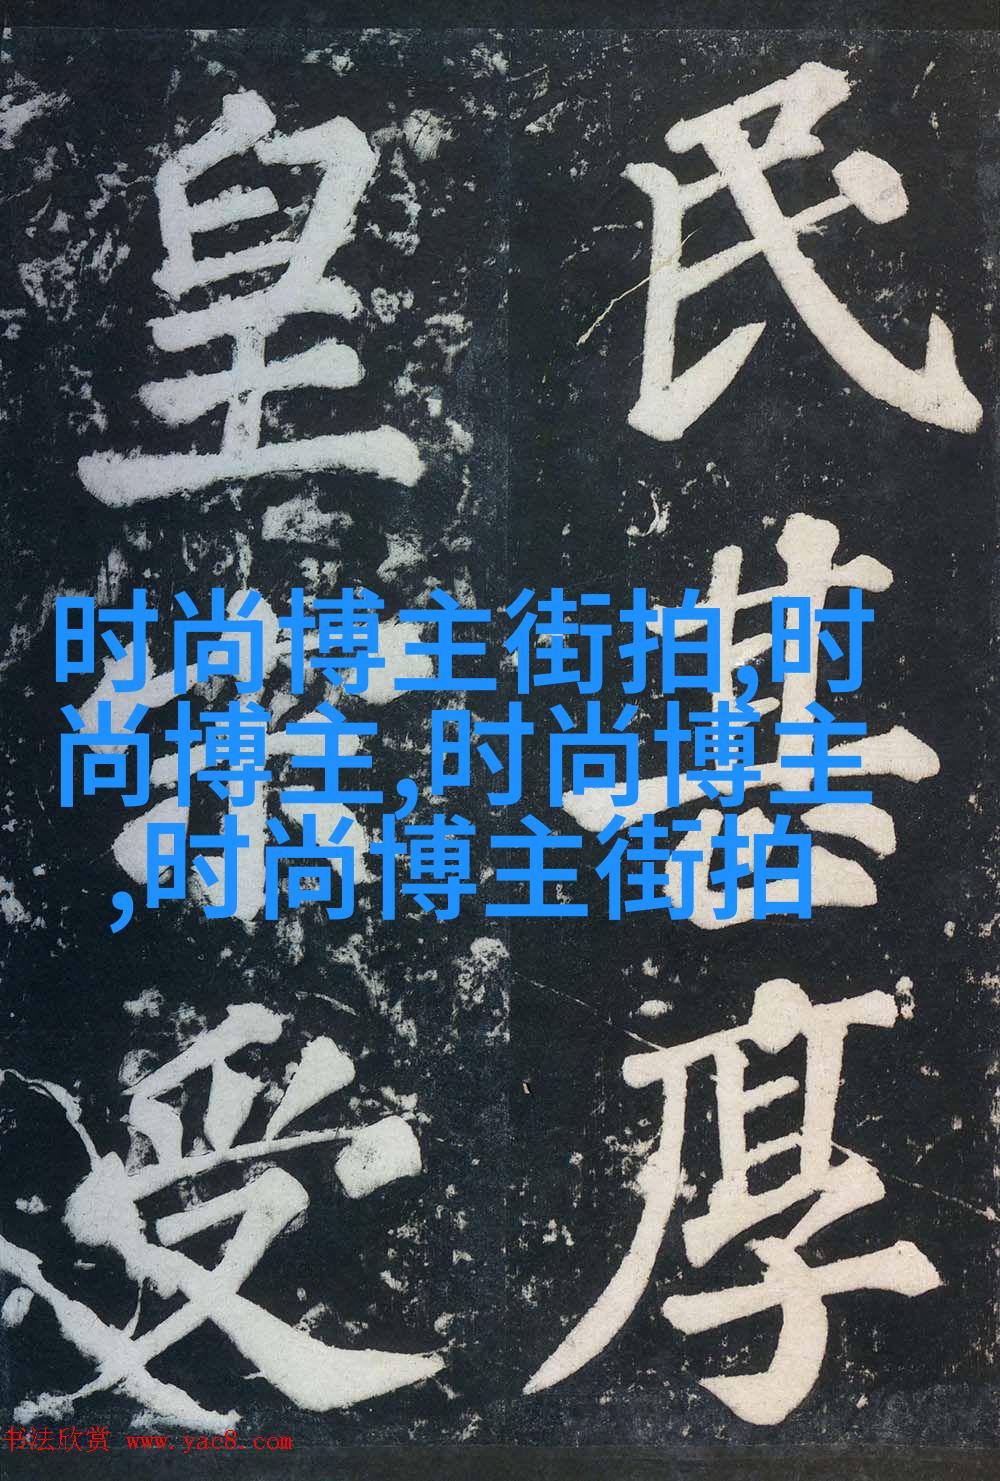 民其厚
皇帝受
时尚博主街拍,时
尚博主,时尚博主
,时尚博主街拍
书法欣赏 www.yac8.com